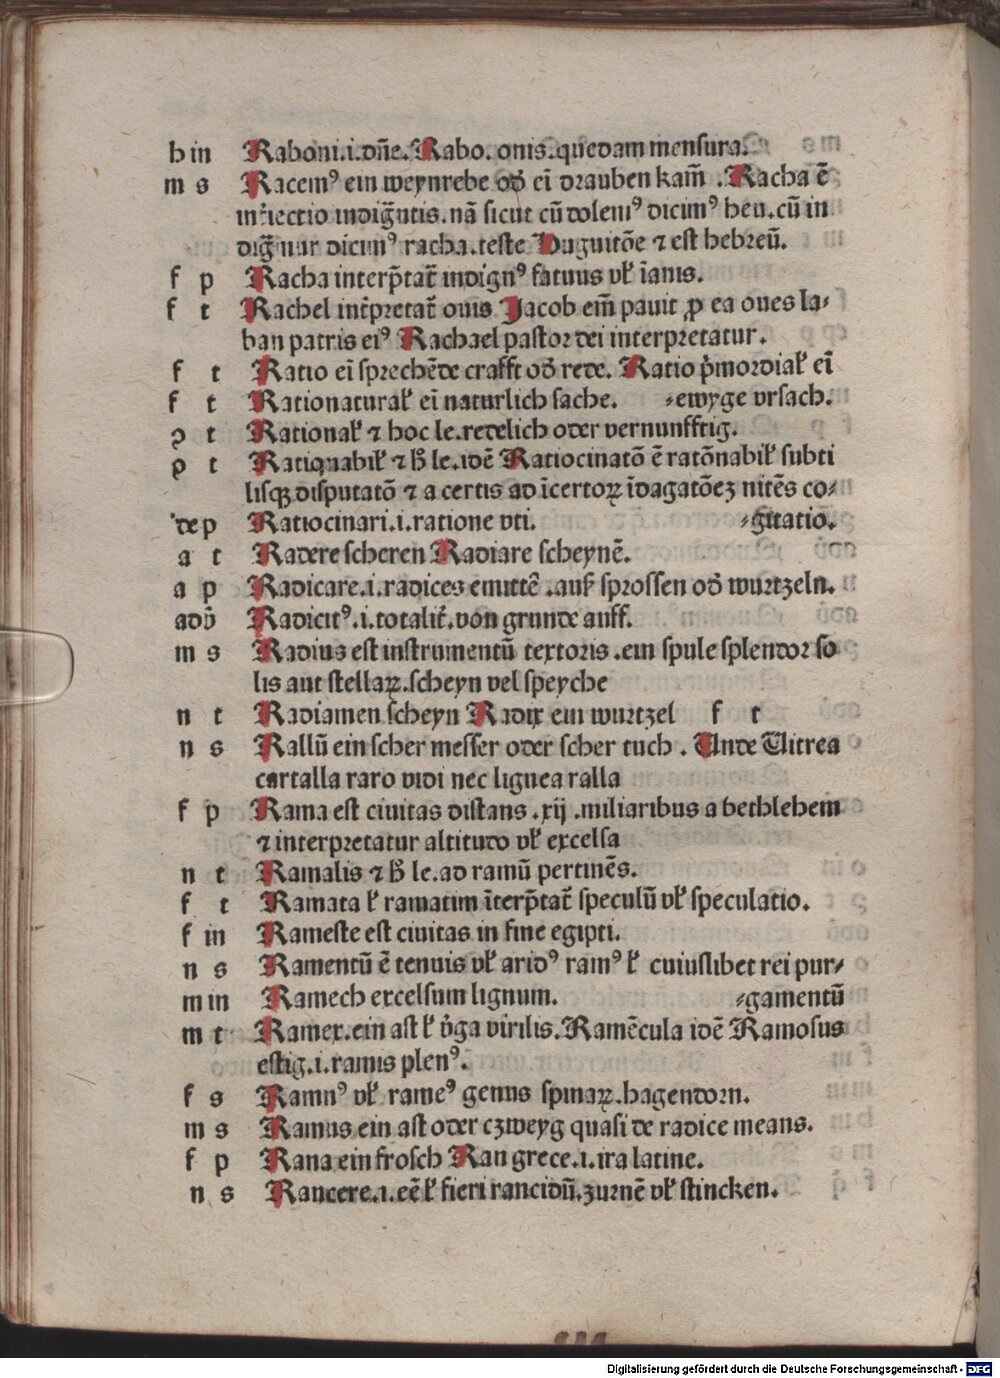 h in Raboni.i.dñe. Rabo. onis.quedam mensura.
m s Racemꝰ ein weynrebe od̓ eī drauben kam̄ . Racha ē
int̓iectio indig̅ntis.nā sicut cū dolemꝰ dicimꝰ heu.cū in
dig̅nur dicimꝰ racha.teste Huguitōe ⁊ est hebreū.
f p Racha interp̄tat̄ indignꝰ fatuus vl̓ īanis.
f t Rachel int̓pretat̄ ouis Jacob em̄ pauit ꝓ ea oues la⸗
ban patris eiꝰ Rachael pastor dei interpretatur.
f t Ratio eī sprechēde crafft od̓ rede. Ratio p̓mordial̓ eī
f t Rationatural̓ eī naturlich sache. ⸗ewyge vrsach.
ꝯ t Rational̓ ⁊ hoc le.redelich oder vernunfftig.
ꝯ t Rationabil̓ ⁊ h̓ le.idē Ratiocinatō ē ratōnabil̓ subti
lisqꝫ disputatō ⁊ a certis ad īcertoꝝ īdagatōeꝫ nitēs co⸗
dep Ratiocinari.i.ratione vti. ⸗gitatio.
a t Radere scheren Radiare scheynē.
a p Radicare.i.radices emittē .auß sprossen od̓ wurtzeln.
adv̓ Radicitꝰ.i.totalit̓.von grunde auff.
m s Radius est instrumentū textoris .ein spule splendor so
lis aut stellaꝝ.scheyn vel speyche
n t Radiamen scheyn Radix ein wurtzel f t
n s Rallū ein scher messer oder scher tuch . Unde Vitrea
cartalla raro vidi nec lignea ralla
f p Rama est ciuitas distans .xij .miliaribus a bethlehem
⁊ interpretatur altitudo vl̓ excelsa
n t Ramalis ⁊ h̓ le.ad ramū pertinēs.
f t Ramata l̓ ramatim īterp̄tat̄ speculū vl̓ speculatio.
f in Rameste est ciuitas in fine egipti.
n s Ramentū ē tenuis vl̓ aridꝰ ramꝰ l̓ cuiuslibet rei pur⸗
m in Ramech excelsum lignum. ⸗gamentū
m t Ramex.ein ast l̓ v̓ga virilis.Ramēcula idē Ramosus
estig.i.ramis plenꝰ.
f s Ramnꝰ vl̓ rameꝰ genus spinaꝝ.hagendorn.
m s Ramus ein ast oder czweyg quasi de radice means.
f p Rana ein frosch Ran grece.i.ira latine.
n s Rancere.i.eē l̓ fieri rancidū.zurnē vl̓ stincken.
Digitalisierung gefördert durch die Deutsche Forschungsgemeinschaft - DFG